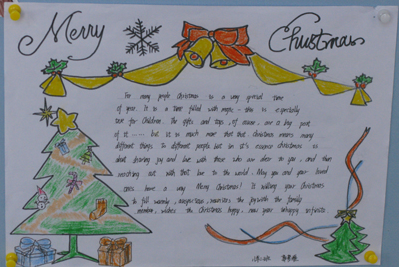 Merry Christmas
For many people Christmas is a very special time
of year. It is a time filled with magic - this is especially
true for children. The gifts and toys, of course, are a big part
of it ...... but it is much more than that. Christmas means many
different things to different people but in it's essence christmas is
about sharing joy and love with those who are dear to you, and then
reaching out with that love to the world. May you and your loved
ones have a very Merry Christmas! It willing your Christmas
to fill warmly, the joy with the family
member, wishes the Christmas happy, new year